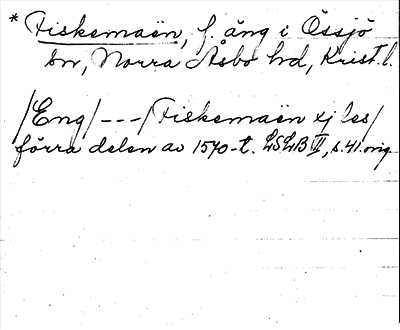 * Fiskemaën, f. äng i Össjö
sn, Norra Åsbo hd, Krist. l.
/Eng/---/Fiskemaën ej les/
förra delen av 1570-t. LSLB II, s. 41. orig